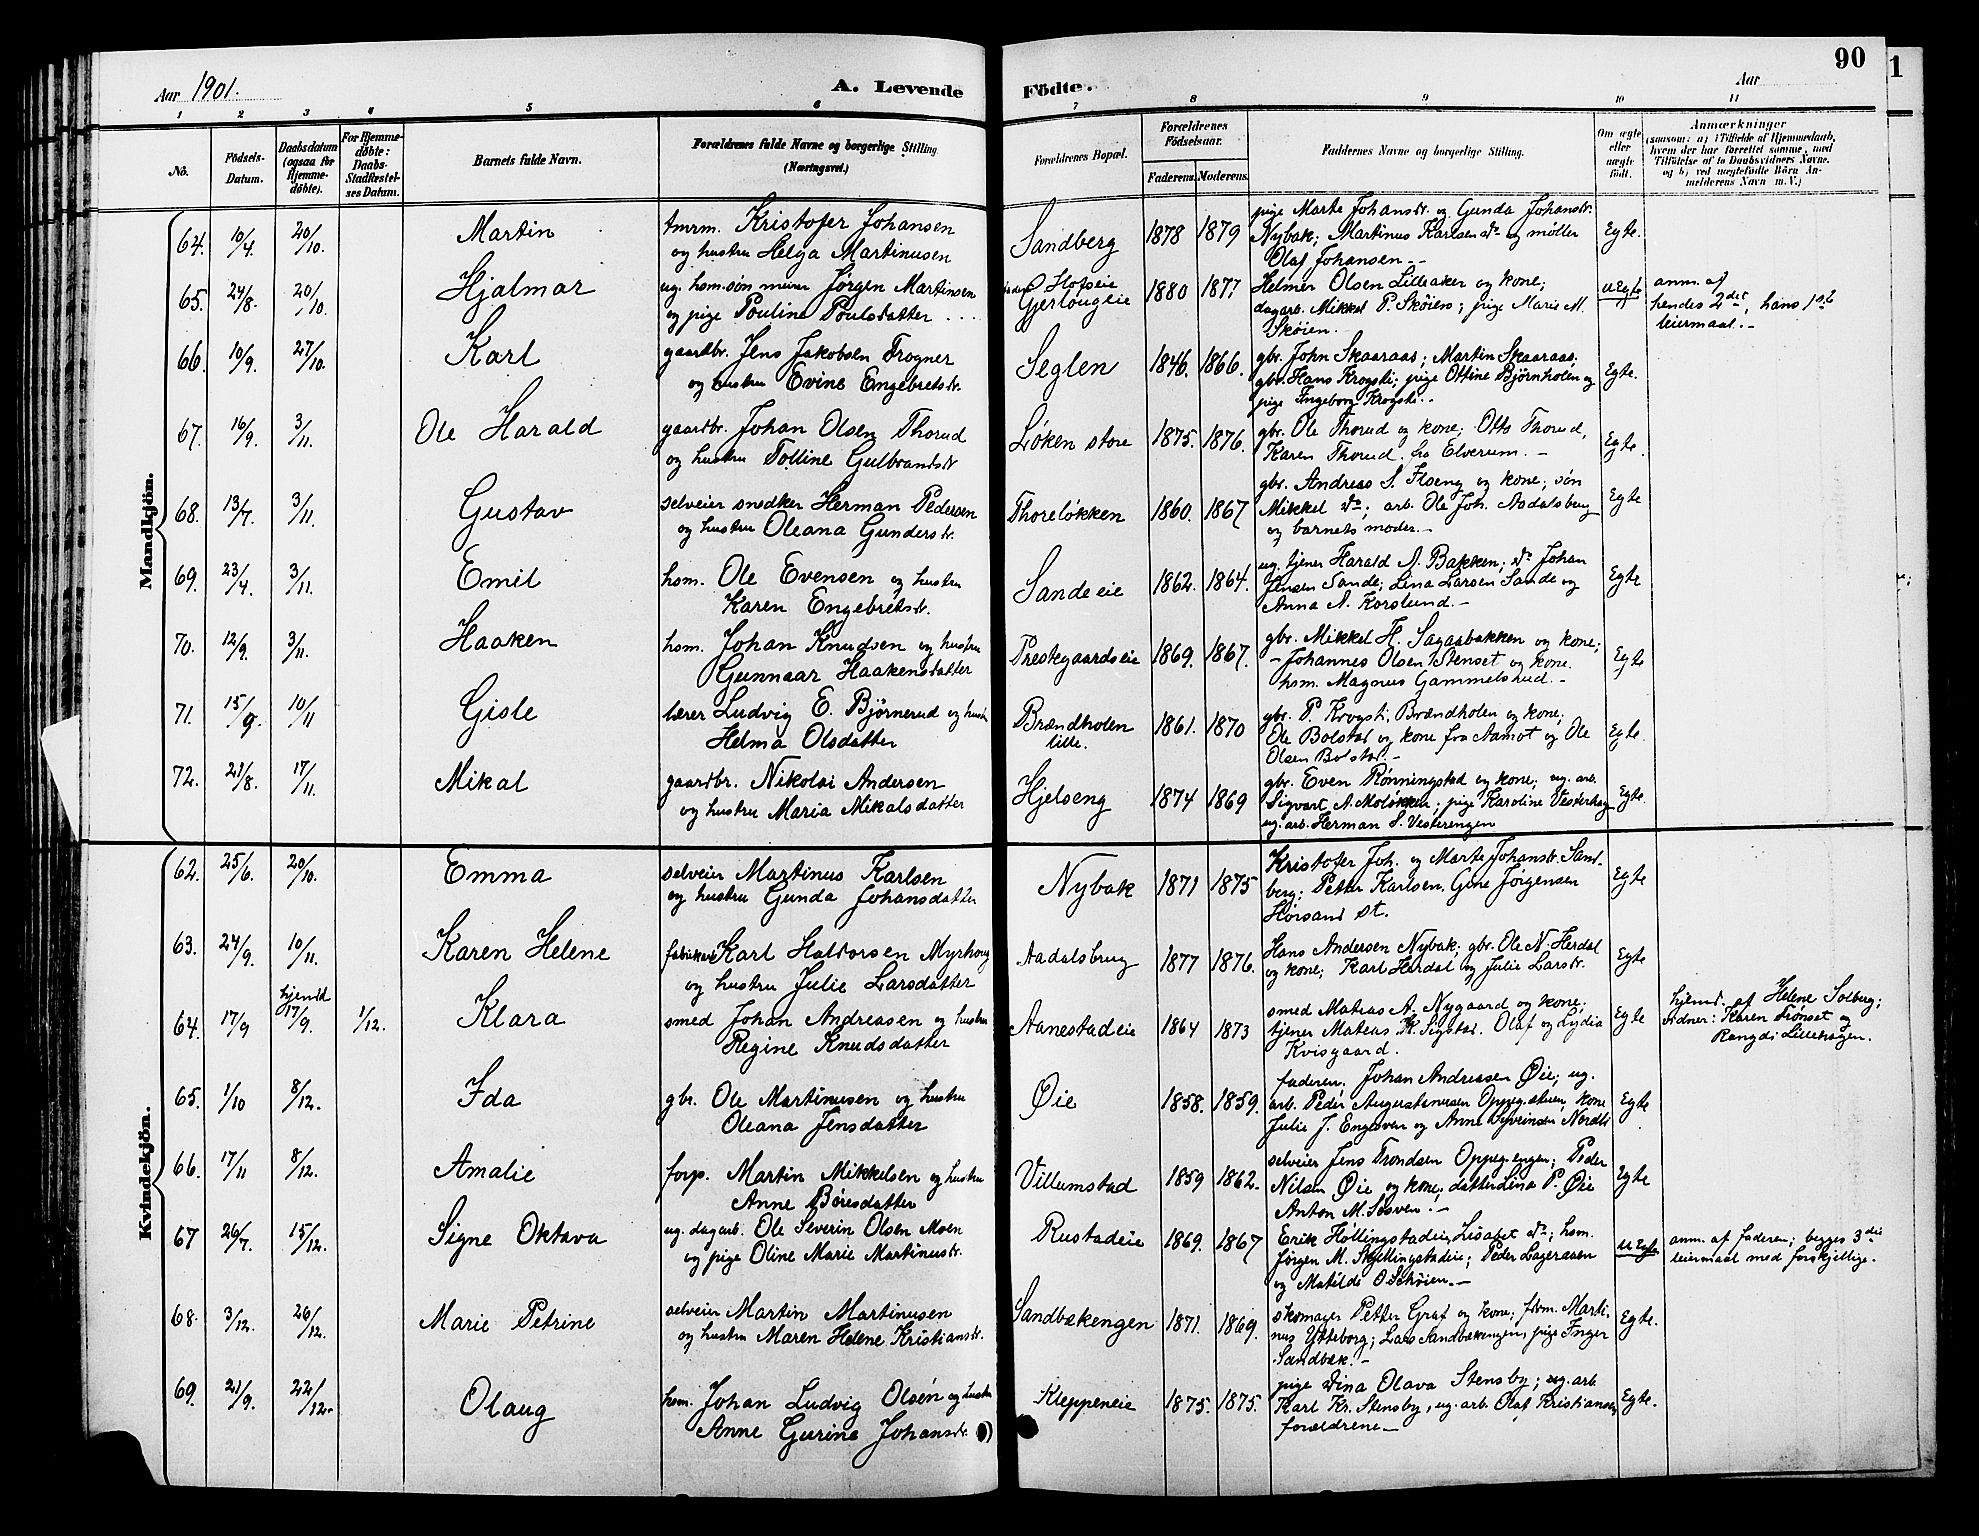 90
1
Aar 1901.
A. Levende Födte.
Aar
1 2 3 4 5 6 7 8 9 10 11
No.
Födsels-Datum.
Daabsdatum (ogsaa for Hjemme-döbte).
For Hjemme-döbte: Daabs-Stadfæstel-ses Datum.
Barnets fulde Navn.
Forældrenes fulde Navne og borgerlige Stilling (Næringsvei.)
Forældrenes Bopæl.
Forældrenes Födselsaar.
Faderens. Moderens.
Faddernes Navne og borgerlige Stilling.
Om ægte eller uægte födt.
Anmærkninger
(saasom: a) i Tilfælde af Hjemmedaab, hvem der har forrettet samme, med Tilföielse af to Daabsvidners Navne. og b) ved uægtefödte Börn An-melderens Navn m. V.)
Mandkjön.
64. 10/4. 20/10. Martin
tmrm. Kristofer Johansen
og hustru Helga Martinusen
Sandberg 1878 1879
pige Marte Johansdr. og Gunda Johansdr.
Nybak; Martinus Karlsen do og møller
Olaf Johansen.-
Egte.
65. 24/8. 20/10. Hjalmar
ug. hsm.søn murer Jørgen Martinsen
og pige Pouline Poulsdatter
Hofseie
Gjerlougeie 1880 1877
Helmer Olsen Lilleaker og kone;
dagarb. Mikkel P. Skøien; pige Marie M.
Skøien.
uEgte
anm. af
hendes 2det, hans 1ste
leiermaal.-
66. 10/9. 27/10. Karl
gaardbr. Jens Jakobsen Trogner
og hustru Evine Engebretsdr.
Seglen 1846. 1866.
gbr. John Skaaraas; Martin Skaaraas;
gbr. Hans Krogsti; pige Ottine Björnholen og
pige Ingeborg Krogsti.-
Egte.
67. 16/9. 3/11. Ole Harald
gaardbr. Johan Olsen Thorud
og hustru Tolline Gulbrandsdr
Løken store 1875. 1876.
gbr. Ole Thorud og kone; Otto Thorud,
Karen Thorud. fra Elverum.-
Egte.
68. 13/7. 3/11. Gustav
selveier snedker Herman Pedersen
og hustru Oleana Gundersdr.
Thoreløkken 1860. 1867
gbr. Andreas S. Floeng og kone; søn
Mikkel do; arb. Ole Joh. Aadalsbrug
og barnets moder.-
Egte
69. 23/4. 3/11. Emil
hsm. Ole Evensen og hustru
Karen Engebretsdr.
Sandeeie 1862. 1864.
ug. tjener Harald A. Bakken; do Johan
Jensen Sande; Lina Larsen Sande og
Anna A. Korslund.-
Egte
70. 12/9. 3/11. Haaken
hsm. Johan Knudsen og hustru
Gunnaar Haakensdatter
Prestegaardseie 1869. 1867.
gbr. Mikkel H. Sagasbakken og kone;
- Johannes Olsen Stenset og kone.
hsm. Magnus Gammelshud.-
Egte
71. 15/9. 10/11 Gisle
lærer Ludvig E. Björnerud og hustru
Helma Olsdatter
Brændholen
lille. 1861. 1870
gbr. P. Krogsti, Brændholen og kone;
Ole Bolstad og kone fra Aamot og Ole
Olsen Bolstad.-
Egte.
72. 21/8. 17/11. Mikal
gaardbr. Nikolai Andersen
og hustru Maria Mikalsdatter
Hjelseng 1874 1869
gbr. Even Rønningstad og kone; ug. arb.
Sigvart A. Moløkken; pige Karoline Vesterhag
ug. arb. Herman S. Vesterengen
Egte.
Kvindekjön.
62. 25/6. 20/10. Emma
selveier Martinus Karlsen
og hustru Gunda Johansdatter
Nybak 1871 1875
Kristofer Joh. og Marte Johansdr. Sand-
berg; Petter Karlsen. Gine Jørgensen
Horsand st.
Egte
63. 24/9. 10/11. Karen Helene
Karl Haldorsen Myrhaug
og hustru Julie Larsdatter
Aadalsbrug 1877 1876.
Hans Andersen Nybak; gbr. Ole N. Herdal
og kone; Karl Herdal og Julie Larsdr.
Egte
64. 17/9 hjemd 17/9. 1/12. Klara
smed Johan Andreasen og hustru
Regine Knudsdatter
Aanestadeie 1864 1873
smed Mateas A. Nygaard og kone;
tjener Mateas K. Sigstad. Olaf og Lydia
Kvisgaard.
Egte
hjemd. af Helene Solberg;
vidner: Karen Trønset og
Rangdi Lillehagen.
65. 1/10 8/12. Ida
gbr. Ole Martinusen og hustru
Oleana Jensdatter
Øie 1858. 1859.
faderen. Johan Andreasen Øie; ug.
arb. Peder Augustinusen Oppeg.stuen, kone
Julie J. Engsven og Anne Syverinsen Nordli
Egte
66. 17/11 8/12. Amalie
forp. Martin Mikkelsen og hustru
Anne Børesdatter
Villumstad 1859 1862.
selveier Jens Trondsen Oppeg.engen; Peder
Nilsen Øie og kone; datter Lina P. Øie
Anton M. Sosven.-
Egte
67 26/7. 15/12. Signe Oktava
ug. dagarb. Ole Severin Olsen Moen
og pige Oline Marie Martinusdr.
Rustadeie 1869. 1867
Erik Høllingstadeie, Lisabet do; hsm.
Jörgen M. Skjellingstadeie; Peder Lageraasen
og Matilde O. Skøien.-
uEgte
anm. af faderen; begges 3die
leiermaal med forskjellige.
68. 3/12. 26/12. Marie Petrine
selveier Martin Martinusen
og hustru Maren Helene Kristiansdr.
Sandbækengen 1871. 1869.
skomager Petter Graf og kone; frm. Marti-
nus Ytteborg; Lars Sandbækengen, pige Inger
Sandbæk.-
Egte.
69. 21/9. 22/12. Olaug
hsm. Johan Ludvig Olsen og hustru
Anne Gurine Johansdr.
Kleppeneie 1875. 1875.
pige Dina Olava Stensby; ug. arb.
Karl Kr. Stensby, ug. arb. Olaf Kristiansen
forældrene-
Egte.